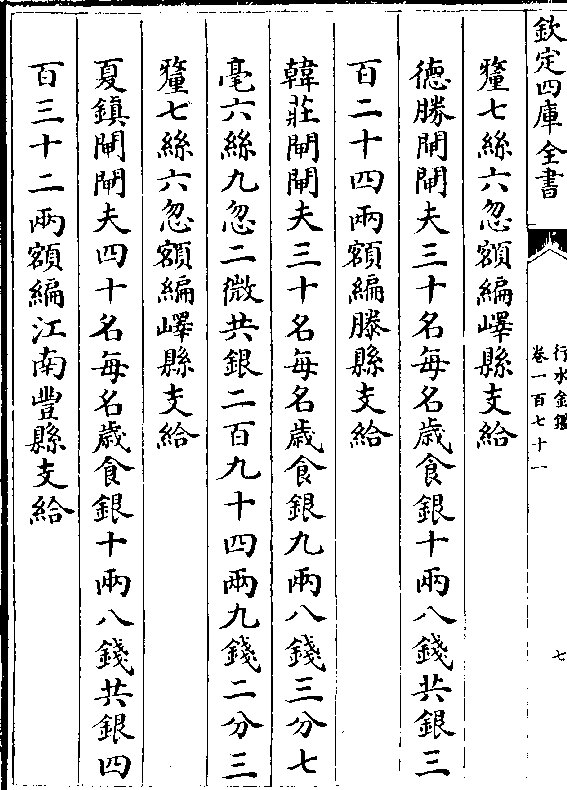 欽定四庫全書
行水金鑑
卷一百七十一
七
釐七絲六忽額編嶧縣支給
德勝閘閘夫三十名每名歲食銀十兩八錢共銀三
百二十四兩額編滕縣支給
韓莊閘閘夫三十名每名歲食銀九兩八錢三分七
毫六絲九忽二微共銀二百九十四兩九錢二分三
釐七絲六忽額編嶧縣支給
夏鎮閘閘夫四十名每名歲食銀十兩八錢共銀四
百三十二兩額編江南豐縣支給